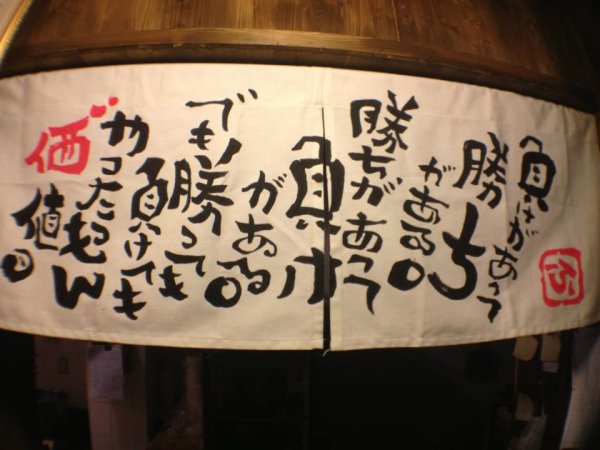 負けがあって
勝ち
がある。
勝ちがあって
負け
がある。
でも!勝っても
負けても
やったもん
価値。